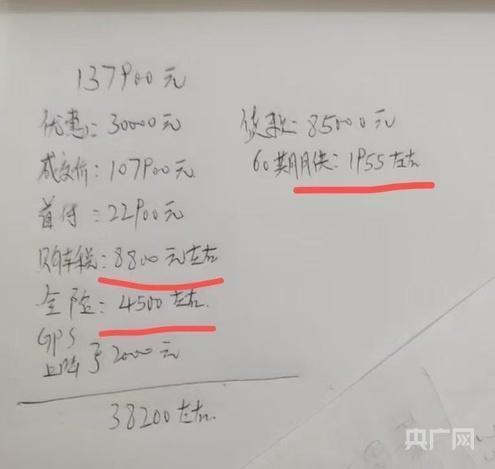 137900元
优惠: 30000元
成交价: 107900元
首付: 22900元
购车税: 8800元左右
全险: 4500左右.
GPS
上牌 } 2000元
38200左右.
贷款: 85000元
60期月供: 1955左右
央广网